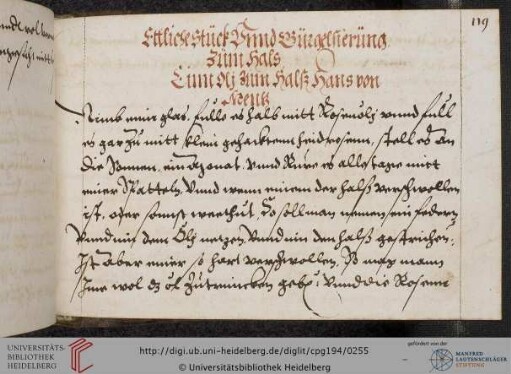 119
Ettliche stück Vnnd Gürgelsierüng
Zum Hals
Einn Olj Zum Halß Hans von
Mentz
Nimb einn glas, fulls es halb mitt Rosenolj vnnd full
es gar zu mitt klein gehacktenn heidrosenn, stell es an
die Sonnen, ein Monat, vnnd Rure es alle tage mitt
einer Spatteln, Vnnd wann einem der halß verschwollen
ist, oder sonnst weethut, so soll man nemen ein federn
Vnnd inn dem Olj netzen, Vnnd inn den halß gestrichen,
Ist aber einer so hart verschwollen, So mag mann
Ime wol dz öl Zutrincken gebn, vnnd die Rosenn
UNIVERSITÄTS-
BIBLIOTHEK
HEIDELBERG
http://digi.ub.uni-heidelberg.de/diglit/cpg194/0255
© Universitätsbibliothek Heidelberg
gefördert von der
MANFRED
LAUTENSCHLÄGER
STIFTUNG